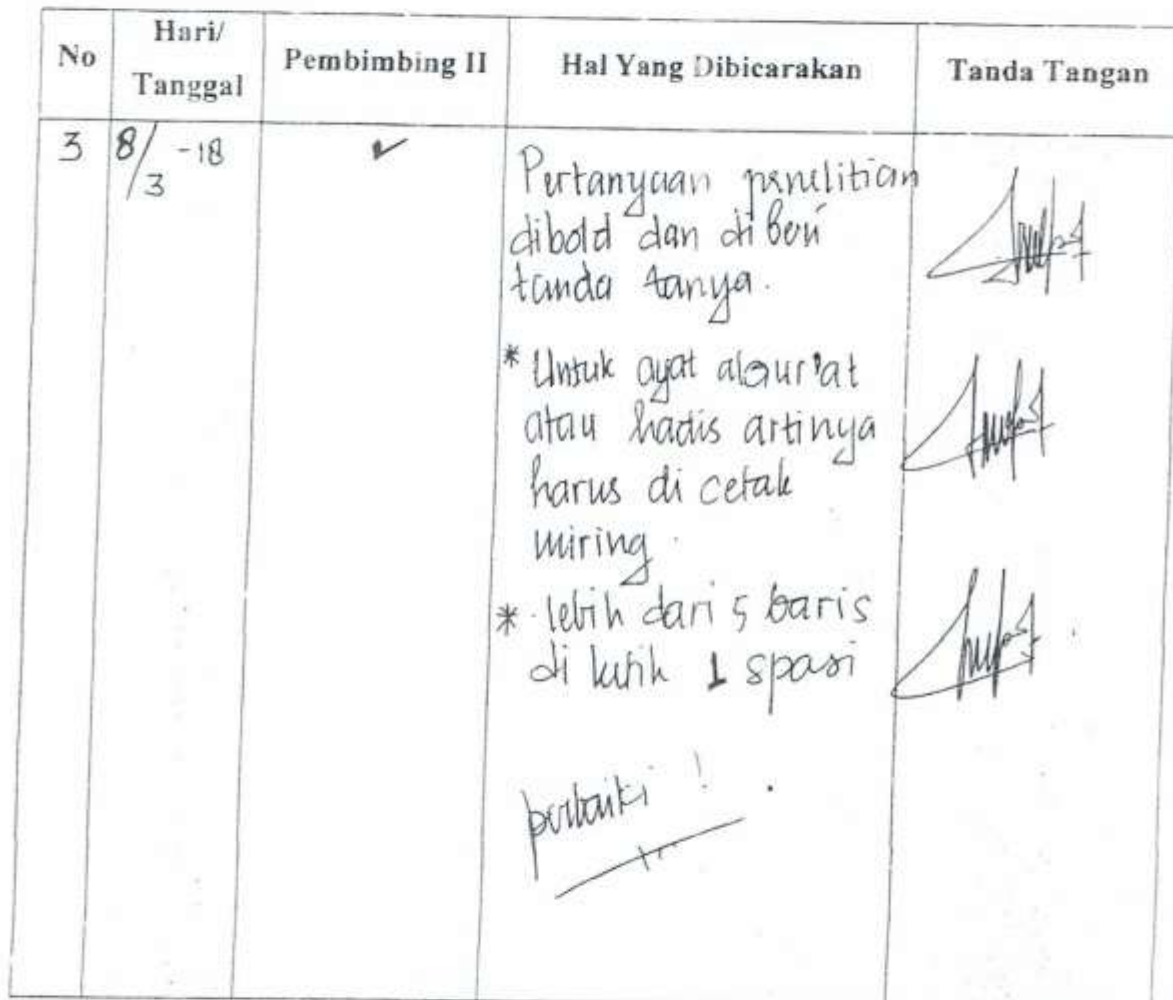 No
Hari/
Tanggal
Pembimbing II
Hal Yang Dibicarakan
Tanda Tangan
3
8/3 -18
✓
Pertanyaan penelitian
dibold dan di beri
tanda tanya.
* Untuk ayat alqur'at
atau hadis artinya
harus di cetak
miring.
* lebih dari 5 baris
di kutik 1 spasi
perbaiki !